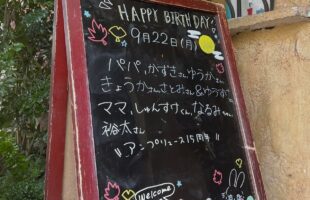 HAPPY BIRTHDAY
9月22日(月)
パパ,かずきさん,ゆうかさん
きょうかさん,さとみさん&ゆうすけ
ママ,しゅんすけくん,なるみちゃん
裕太さん
"アンプリュース15周年"
Welcome